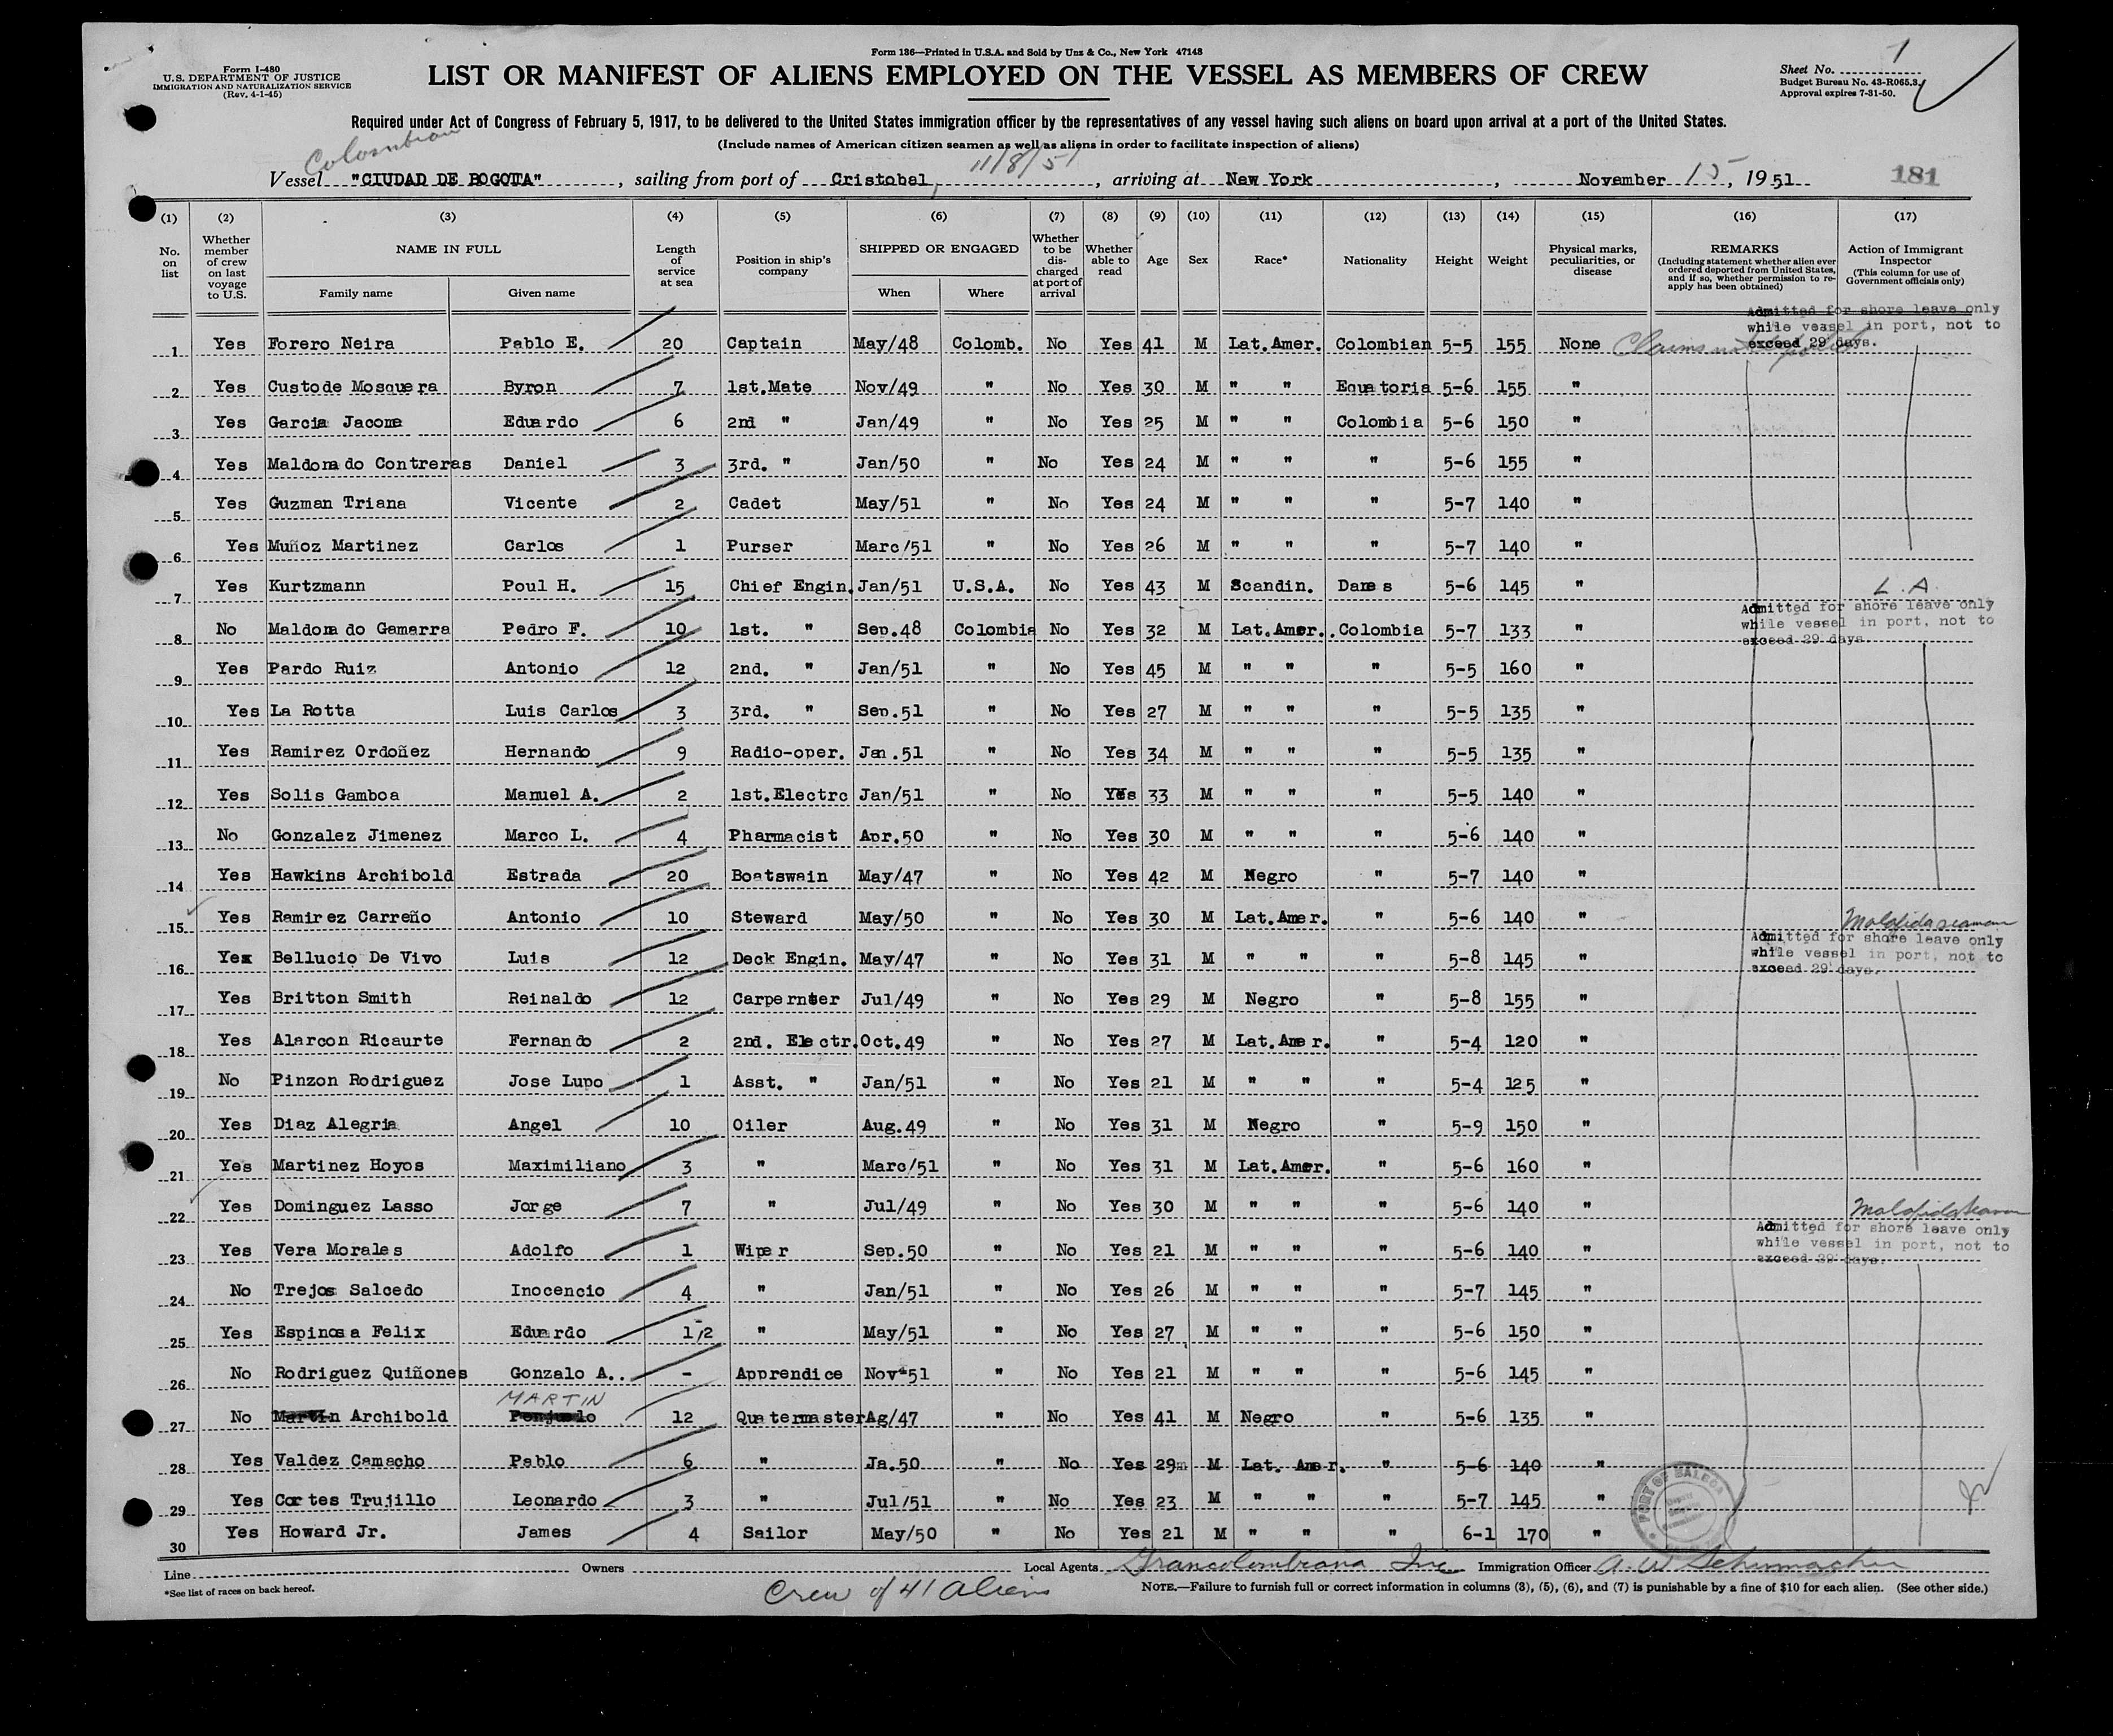 Form 186—Printed in U.S.A. and Sold by Unz & Co., New York 47148
Form I-480
U.S. DEPARTMENT OF JUSTICE
IMMIGRATION AND NATURALIZATION SERVICE
(Rev. 4-1-45)
LIST OR MANIFEST OF ALIENS EMPLOYED ON THE VESSEL AS MEMBERS OF CREW
Sheet No. 1
Budget Bureau No. 43-R065.3.
Approval expires 7-31-50.
Required under Act of Congress of February 5, 1917, to be delivered to the United States immigration officer by the representatives of any vessel having such aliens on board upon arrival at a port of the United States.
(Include names of American citizen seamen as well as aliens in order to facilitate inspection of aliens)
Colombian
11/8/51
Vessel "CIUDAD DE BOGOTA", sailing from port of Cristobal, arriving at New York, November 15, 1951 181
(1) (2) (3) (4) (5) (6) (7) (8) (9) (10) (11) (12) (13) (14) (15) (16) (17)
No. on list
Whether member of crew on last voyage to U.S.
NAME IN FULL
Family name Given name
Length of service at sea
Position in ship's company
SHIPPED OR ENGAGED
When Where
Whether to be discharged at port of arrival
Whether able to read
Age Sex Race* Nationality Height Weight
Physical marks, peculiarities, or disease
REMARKS
(Including statement whether alien ever ordered deported from United States, and if so, whether permission to re-apply has been obtained)
Action of Immigrant Inspector
(This column for use of Government officials only)
Admitted for shore leave only
while vessel in port, not to
exceed 29 days.
1 Yes Forero Neira Pablo E. 20 Captain May/48 Colomb. No Yes 41 M Lat.Amer. Colombian 5-5 155 None Claims
2 Yes Custode Mosquera Byron 7 1st.Mate Nov/49 " No Yes 30 M " " Equatoria 5-6 155 "
3 Yes Garcia Jacome Eduardo 6 2nd " Jan/49 " No Yes 25 M " " Colombia 5-6 150 "
4 Yes Maldonado Contreras Daniel 3 3rd. " Jan/50 " No Yes 24 M " " " 5-6 155 "
5 Yes Guzman Triana Vicente 2 Cadet May/51 " No Yes 24 M " " " 5-7 140 "
6 Yes Muñoz Martinez Carlos 1 Purser Marc/51 " No Yes 26 M " " " 5-7 140 "
7 Yes Kurtzmann Poul H. 15 Chief Engin. Jan/51 U.S.A. No Yes 43 M Scandin. Danes 5-6 145 " L.A.
Admitted for shore leave only
while vessel in port, not to
exceed 29 days.
8 No Maldonado Gamarra Pedro F. 10 1st. " Sep.48 Colombia No Yes 32 M Lat.Amer. Colombia 5-7 133 "
9 Yes Pardo Ruiz Antonio 12 2nd. " Jan/51 " No Yes 45 M " " " 5-5 160 "
10 Yes La Rotta Luis Carlos 3 3rd. " Sep.51 " No Yes 27 M " " " 5-5 135 "
11 Yes Ramirez Ordoñez Hernando 9 Radio-oper. Jan.51 " No Yes 34 M " " " 5-5 135 "
12 Yes Solis Gamboa Manuel A. 2 1st.Electrc Jan/51 " No Yes 33 M " " " 5-5 140 "
13 No Gonzalez Jimenez Marco L. 4 Pharmacist Apr.50 " No Yes 30 M " " " 5-6 140 "
14 Yes Hawkins Archibold Estrada 20 Boatswain May/47 " No Yes 42 M Negro " 5-7 140 "
15 Yes Ramirez Carreño Antonio 10 Steward May/50 " No Yes 30 M Lat.Amer. " 5-6 140 " Malafida seaman
Admitted for shore leave only
while vessel in port, not to
exceed 29 days.
16 Yes Bellucio De Vivo Luis 12 Deck Engin. May/47 " No Yes 31 M " " " 5-8 145 "
17 Yes Britton Smith Reinaldo 12 Carpernter Jul/49 " No Yes 29 M Negro " 5-8 155 "
18 Yes Alarcon Ricaurte Fernando 2 2nd. Electr. Oct.49 " No Yes 27 M Lat.Amer. " 5-4 120 "
19 No Pinzon Rodriguez Jose Lupo 1 Asst. " Jan/51 " No Yes 21 M " " " 5-4 125 "
20 Yes Diaz Alegria Angel 10 Oiler Aug.49 " No Yes 31 M Negro " 5-9 150 "
21 Yes Martinez Hoyos Maximiliano 3 " Marc/51 " No Yes 31 M Lat.Amer. " 5-6 160 "
22 Yes Dominguez Lasso Jorge 7 " Jul/49 " No Yes 30 M " " " 5-6 140 " Malafida seaman
Admitted for shore leave only
while vessel in port, not to
exceed 29 days.
23 Yes Vera Morales Adolfo 1 Wiper Sep.50 " No Yes 21 M " " " 5-6 140 "
24 No Trejos Salcedo Inocencio 4 " Jan/51 " No Yes 26 M " " " 5-7 145 "
25 Yes Espinosa Felix Eduardo 1/2 " May/51 " No Yes 27 M " " " 5-6 150 "
26 No Rodriguez Quiñones Gonzalo A.. - Apprendice Nov-51 " No Yes 21 M " " " 5-6 145 "
MARTIN
27 No Martin Archibold 12 Quatermaster Ag/47 " No Yes 41 M Negro " 5-6 135 "
28 Yes Valdez Camacho Pablo 6 " Ja.50 " No Yes 29 M Lat. Amer. " 5-6 140 "
29 Yes Cortes Trujillo Leonardo 3 " Jul/51 " No Yes 23 M " " " 5-7 145 "
30 Yes Howard Jr. James 4 Sailor May/50 " No Yes 21 M " " " 6-1 170 "
PORT OF BALBOA
Line Owners Local Agents Grancolombiana Inc Immigration Officer A. W. Schumacher
*See list of races on back hereof.
Crew of 41 Aliens
NOTE.—Failure to furnish full or correct information in columns (3), (5), (6), and (7) is punishable by a fine of $10 for each alien. (See other side.)